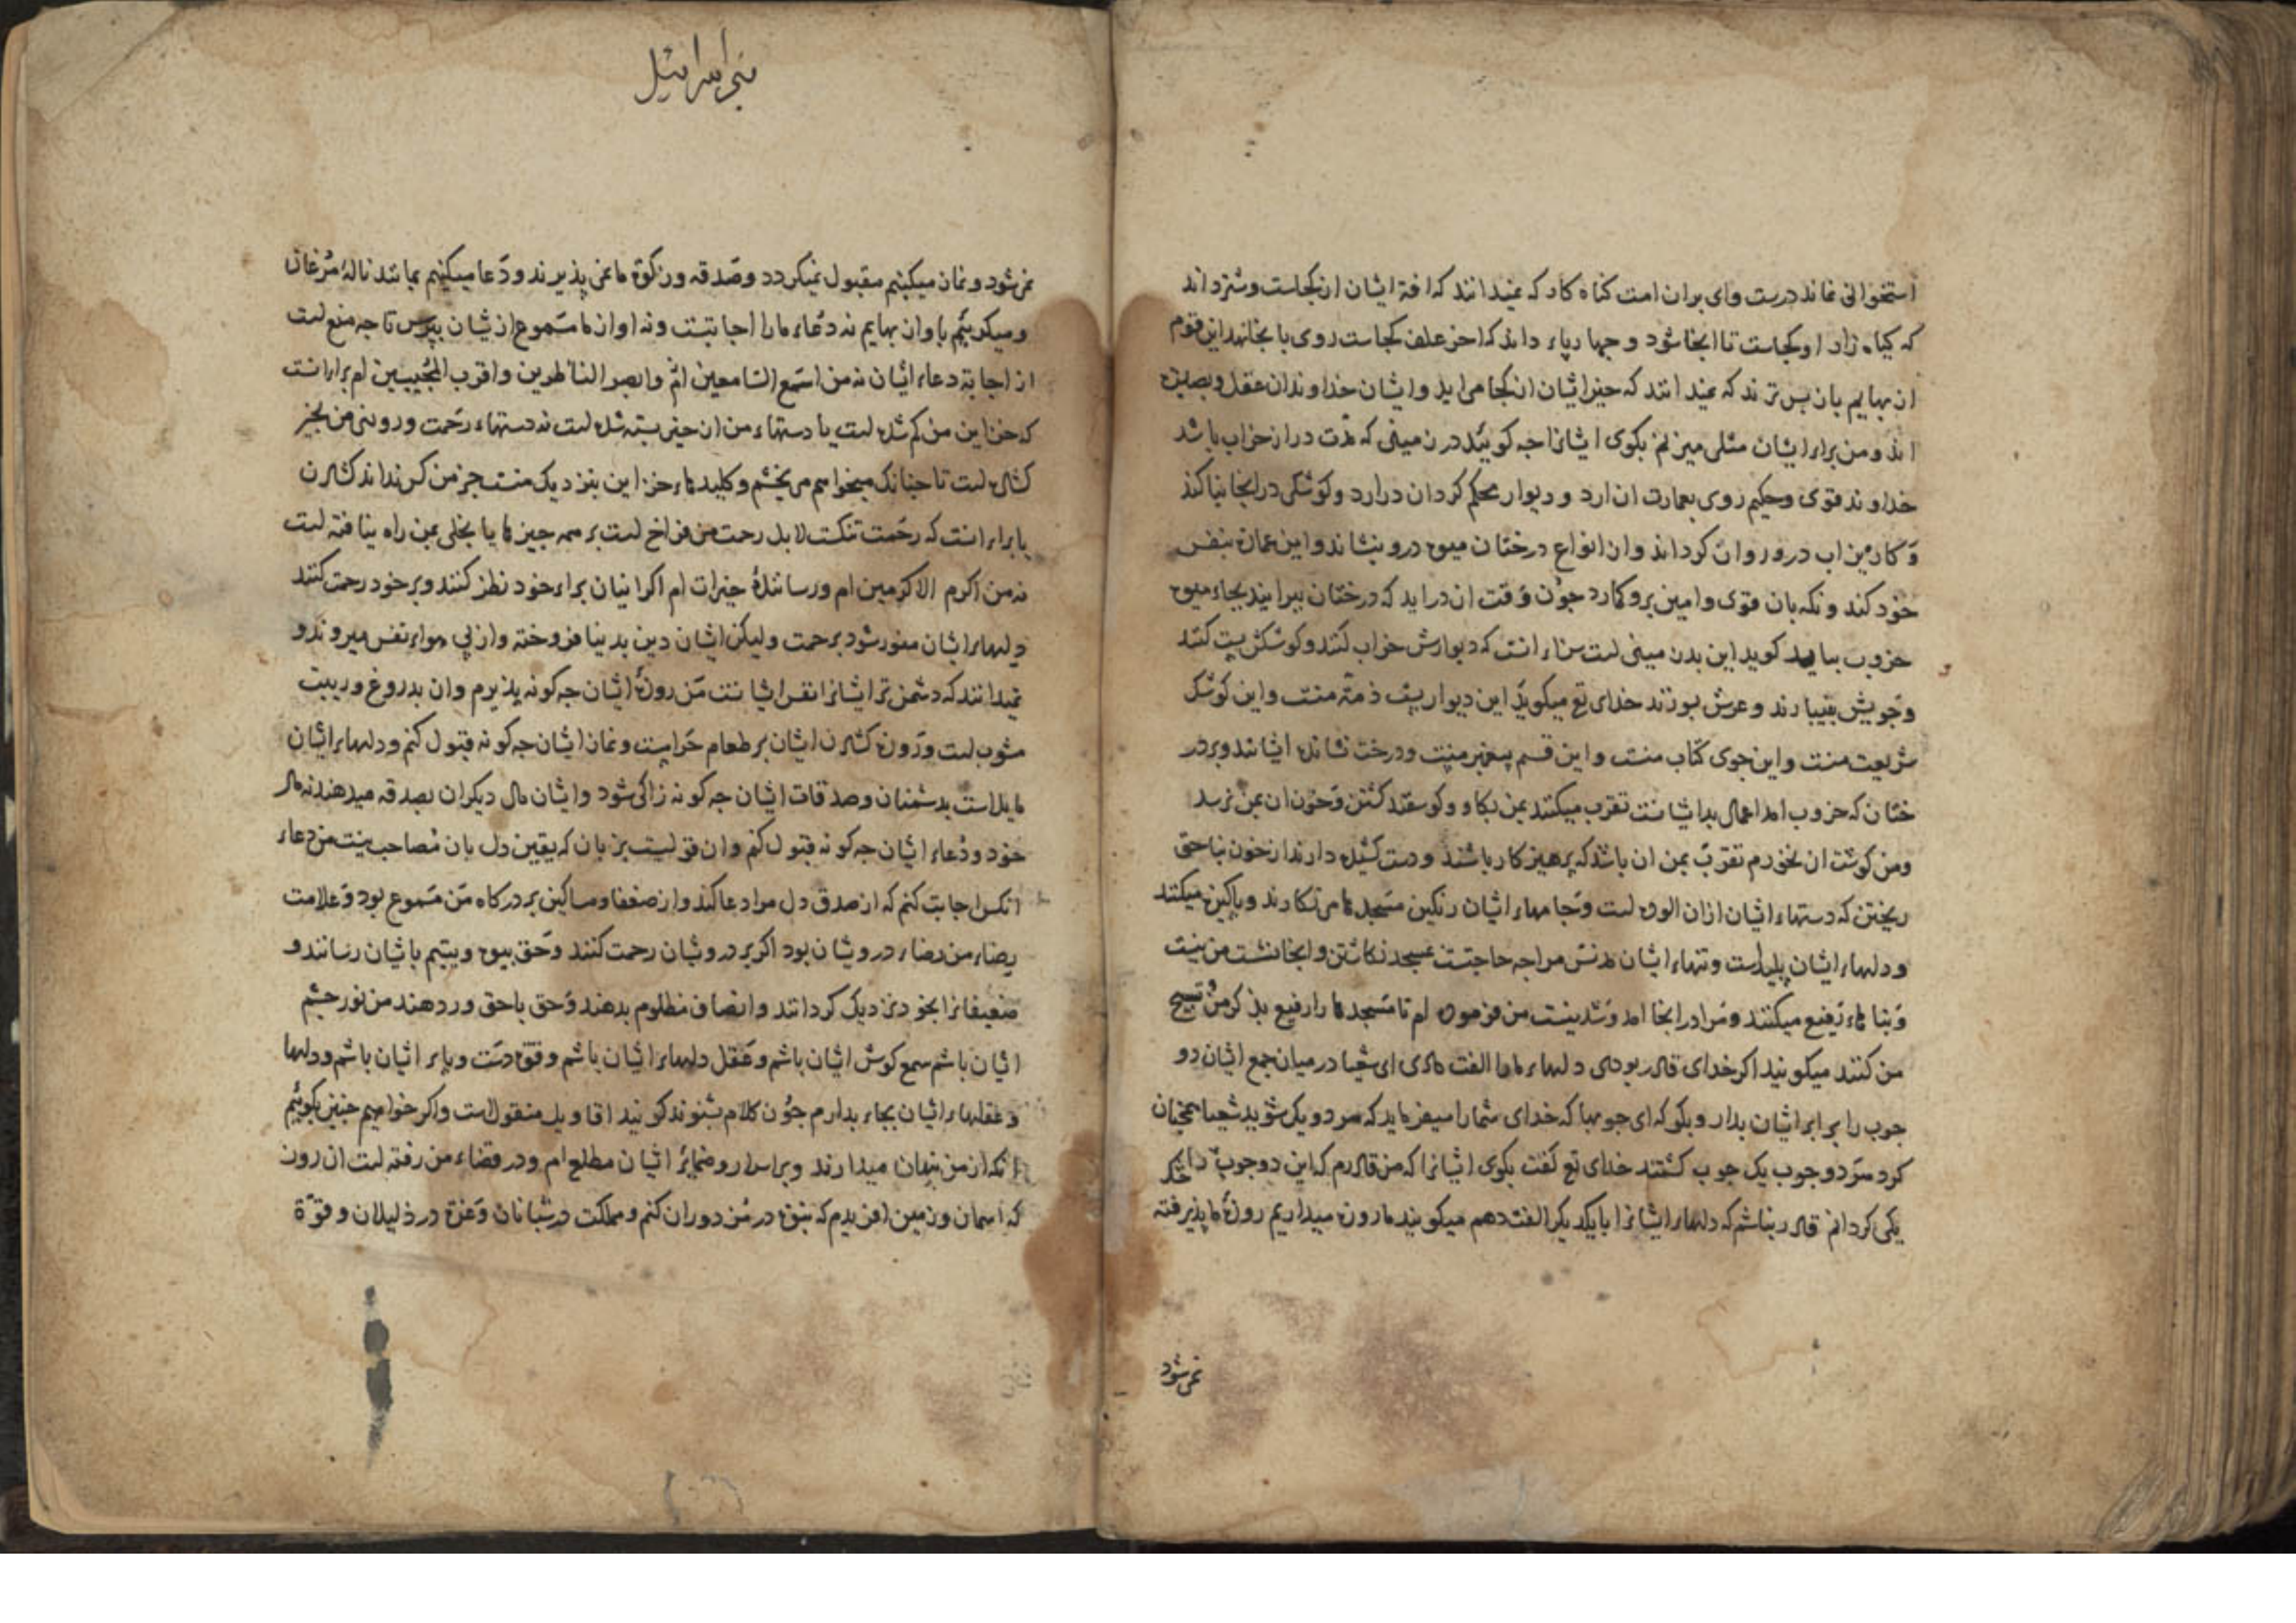 استخوانی نماند درست وای بران امت کناه کار که نمیدانند که افة ایشان از کجاست و شتر داند
که کیاه زار او کجاست تا انجا شود و جهار پاء داند که اخر علف کجاست روی بانجا نهد این قوم
از بهایم بان بس ترند که نمیدانند که خیر ایشان از کجا می اید و ایشان خداوندان عقل و بصیرت
اند و من براء ایشان مثلی میزنم بکوی ایشانرا جه کویید در زمینی که مدت دراز خراب باشد
خداوند قوی و حکیم روی بعمارت ان ارد و دیوار محکم کرد ان درارد و کوشکی در انجا بنا کند
و کاریز اب درو روان کرداند و از انواع درختان میوه درو بنشاند و این عمارة بنفس
خود کند و نکه بان قوی و امین برو کمارد جون وقت ان دراید که درختان ببر ایند بجاء میوه
خروب بیاید کوید این بد زمینی است سزاء انست که دیوارش خراب کنند و کوشکش پست کنند
و جویش بینبارند و غرش بوزند خدای تع میکوید این دیوار پست ذمة منست و این کوشک
شریعت منست و این جوی کتاب منست و این قسم پیغمبر منست و درخت نشانده ایشانند و بر در
ختان که خروب امد اعمال بد ایشانست تقرب میکنند بمن بکاو و کوسفند کشتن و خون ان بمن نرسد
و من کوشت ان نخورم تقرب بمن ان باشد که پرهیزکار باشند و دست کشیده دارند از خون بناحق
ریختن که دستهاء ایشان ازان الوده است و جامهاء ایشان رنکین مسجدها می نکارند و پاکیزه میکنند
و دلهاء ایشان پلیدست و تنهاء ایشان مدنس مرا جه حاجتست بمسجد نکاشتن و انجا نشست من نیست
و بناهاء رفیع میکنند و مرا در انجا امد و شد نیست من فرموده ام تا مسجدها را رفیع بذکر من و تسبیح
من کنند میکویند اکر خدای قادر بودی دلهاء ما را الفت دادی ای شعیا در میان جمع ایشان دو
جوب را برابر ایشان بدار و بکو که ای جوبها که خدای شما را میفرماید که هر دو یک شوید شعیا همجنان
کرد هر دو جوب یک جوب کشتند خدای تع کفت بکوی ایشانرا که من قادرم که این دو جوب را
یکی کردانم قادر نباشم که دلهاء ایشانرا با یکدیکر الفت دهم میکویند ما روزه میداریم روزه ما پذیرفته
نمی شود
بنی اسرائیل
نمی شود و نماز میکنیم مقبول نمیکردد و صدقه و زکوة ما نمی پذیرند و دعا میکنیم بمانند نالۀ مرغان
و میکرییم باواز بهایم نه دعاء ما را اجابتست و نه اواز ما مسموع از یشان بپرس تا جه منع است
از اجابة دعاء ایشان نه من اسمع السامعین ام و ابصر الناظرین و اقرب المجیبین ام براء انست
که خزاین من کم شده است یا دستهاء من از خیر بسته شده است نه دستهاء رحمت و روزی من بخیر
کشاده است تا جنانک میخواهم می بخشم و کلیدهاء خزاین بنزدیک منست جز من کس نداند کشادن
یا براء انست که رحمت تنکست لا بل رحمت من فراخ است بر همه جیزها یا بخلی بمن راه یافته است
نه من اکرم الاکرمین ام و رسانندۀ خیرات ام اکر ایشان براء خود نظر کنند و بر خود رحمت کنند
دلهاء ایشان منور شود برحمت ولیکن ایشان دین بدنیا فروخته و از پی هواء نفس میروند و
نمیدانند که دشمن تر ایشانرا نفس ایشانست من روزۀ ایشان جه کونه پذیرم و ان بدروغ و ریبت
مشوب است و روزه کشادن ایشان بر طعام حرامست و نماز ایشان جه کونه قبول کنم و دلهاء ایشان
مایل است بدشمنان و صدقات ایشان جه کونه زاکی شود و ایشان مال دیکران بصدقه میدهند نه مال
خود و دعاء ایشان جه کونه قبول کنم و ان قولیست بزبان که یقین دل بان مصاحب نیست من دعاء
انکس اجابت کنم که از صدق دل مرا دعا کند و از ضعفا و مساکین بر درکاه من مسموع بود و علامت
رضاء من رضاء درویشان بود اکر بر درویشان رحمت کنند و حق بیوه و یتیم بایشان رسانند و
ضعیفانرا بخود نزدیک کردانند و انصاف مظلوم بدهند و حق باحق ور دهند من نور جشم
ایشان باشم سمع کوش ایشان باشم و عقل دلهاء ایشان باشم و قوة دست و پاء ایشان باشم و دلها
و عقلهاء ایشان بجاء بدارم جون کلام بشنوند کویند اقاویل منقول است و اکر خواهیم جنین بکوییم
انکه از من پنهان میدارند و بر اسرار و ضمایر ایشان مطلع ام و در قضاء من رفته است ان روز
که اسمان و زمین افریدم که نبوة در شبانان دوران کنم و مملکت در شبانان و عزة در ذلیلان و قوة